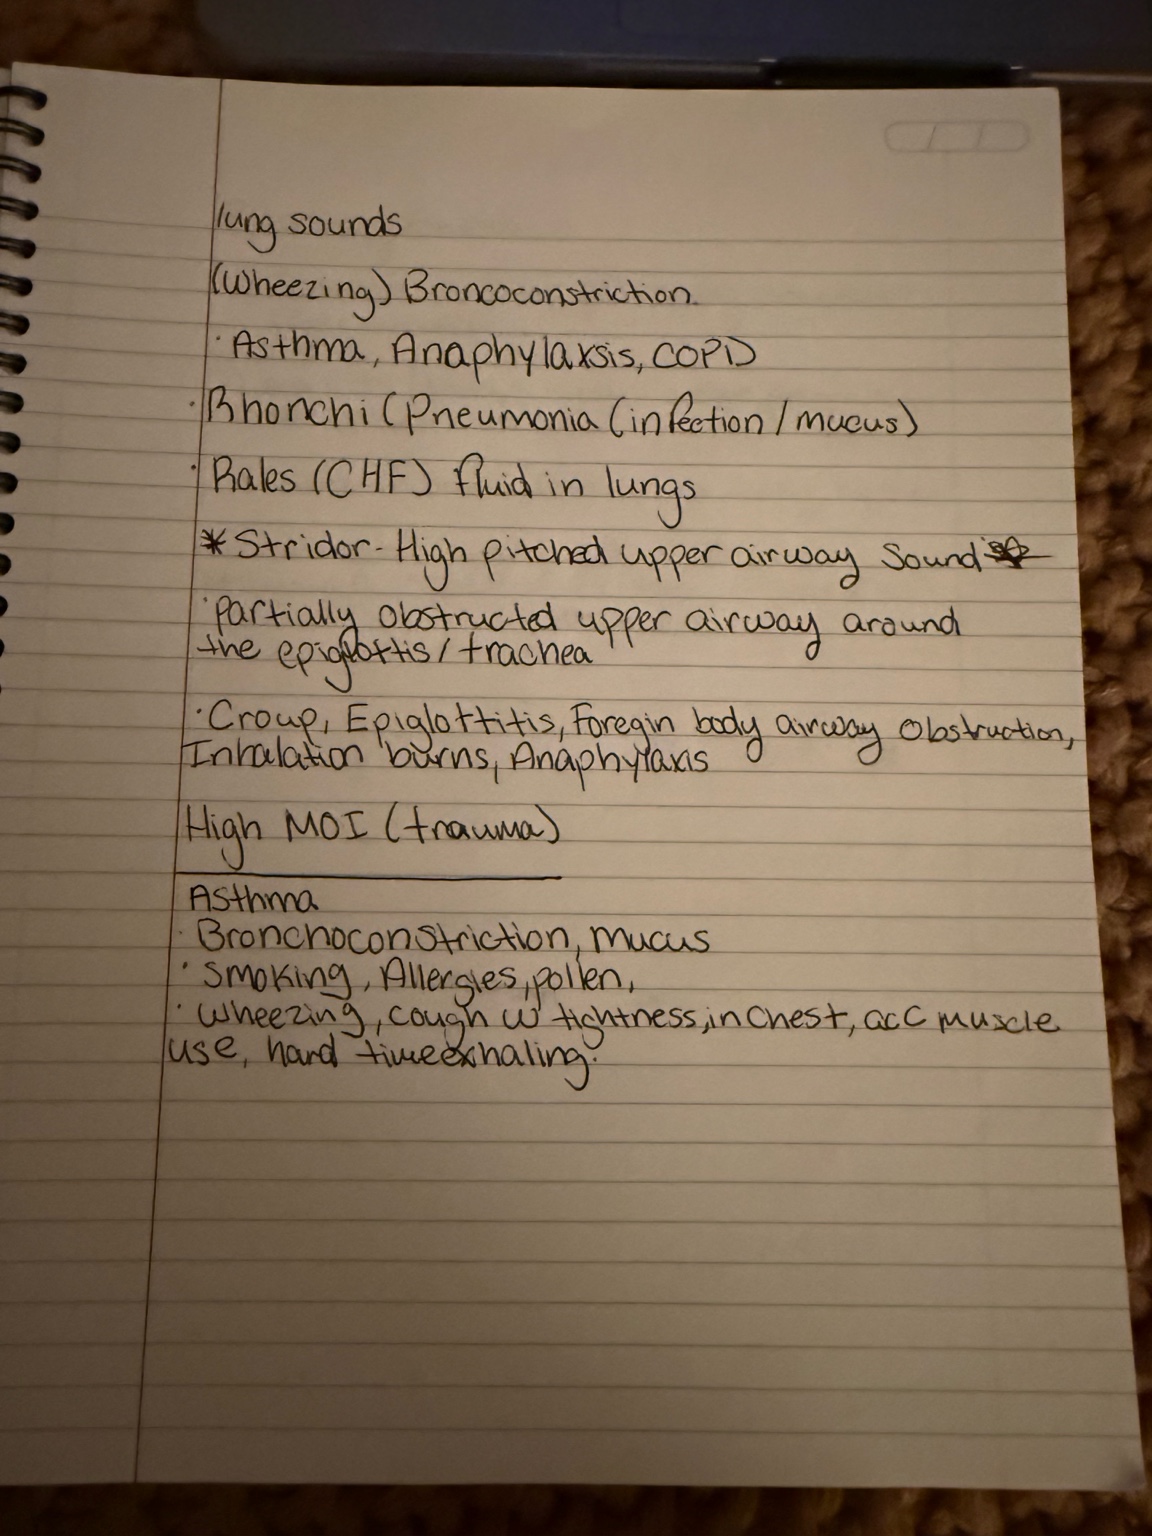 lung sounds
(Wheezing) Broncoconstriction.
· Asthma, Anaphylaxsis, COPD
· Rhonchi (Pneumonia (infection / mucus)
· Rales (CHF) fluid in lungs
* Stridor - High pitched upper airway sound
· partially obstructed upper airway around
the epiglottis / trachea
· Croup, Epiglottitis, Foregin body airway obstruction,
Inhalation burns, Anaphylaxis
High MOI (trauma)
Asthma
· Bronchoconstriction, mucus
· smoking, Allergies, pollen,
· wheezing, cough w tightness, in chest, acc muscle
use, hard time exhaling.